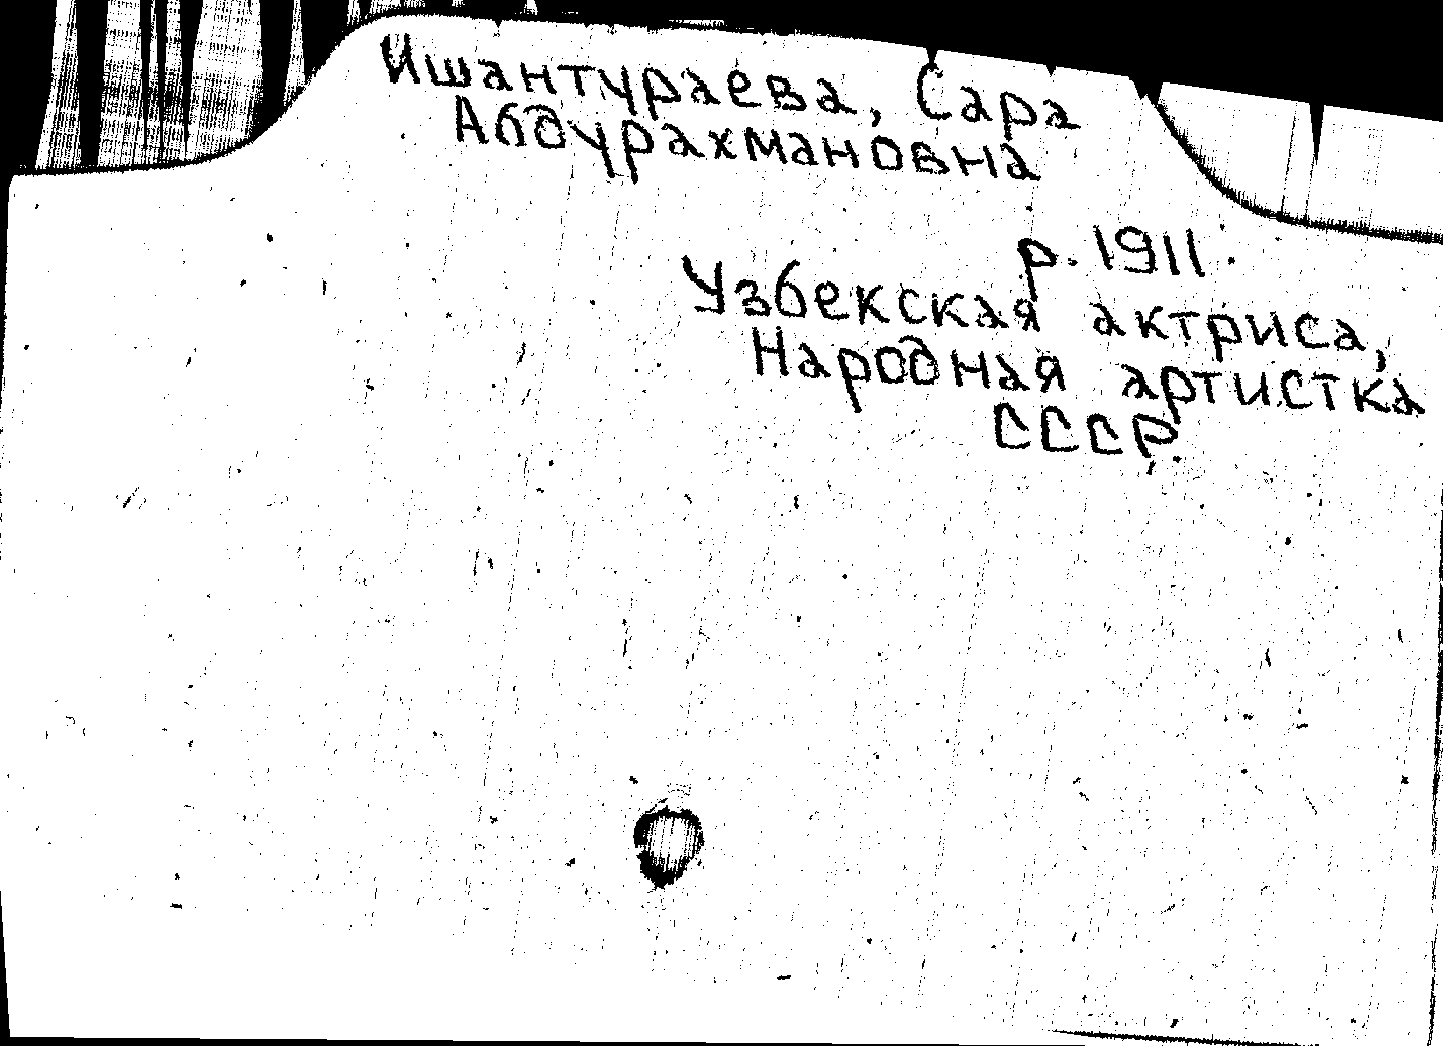 Ишантураева, Сара
Абдурахмановна
р. 1911.
Узбекская актриса,
Народная артистка
СССР.